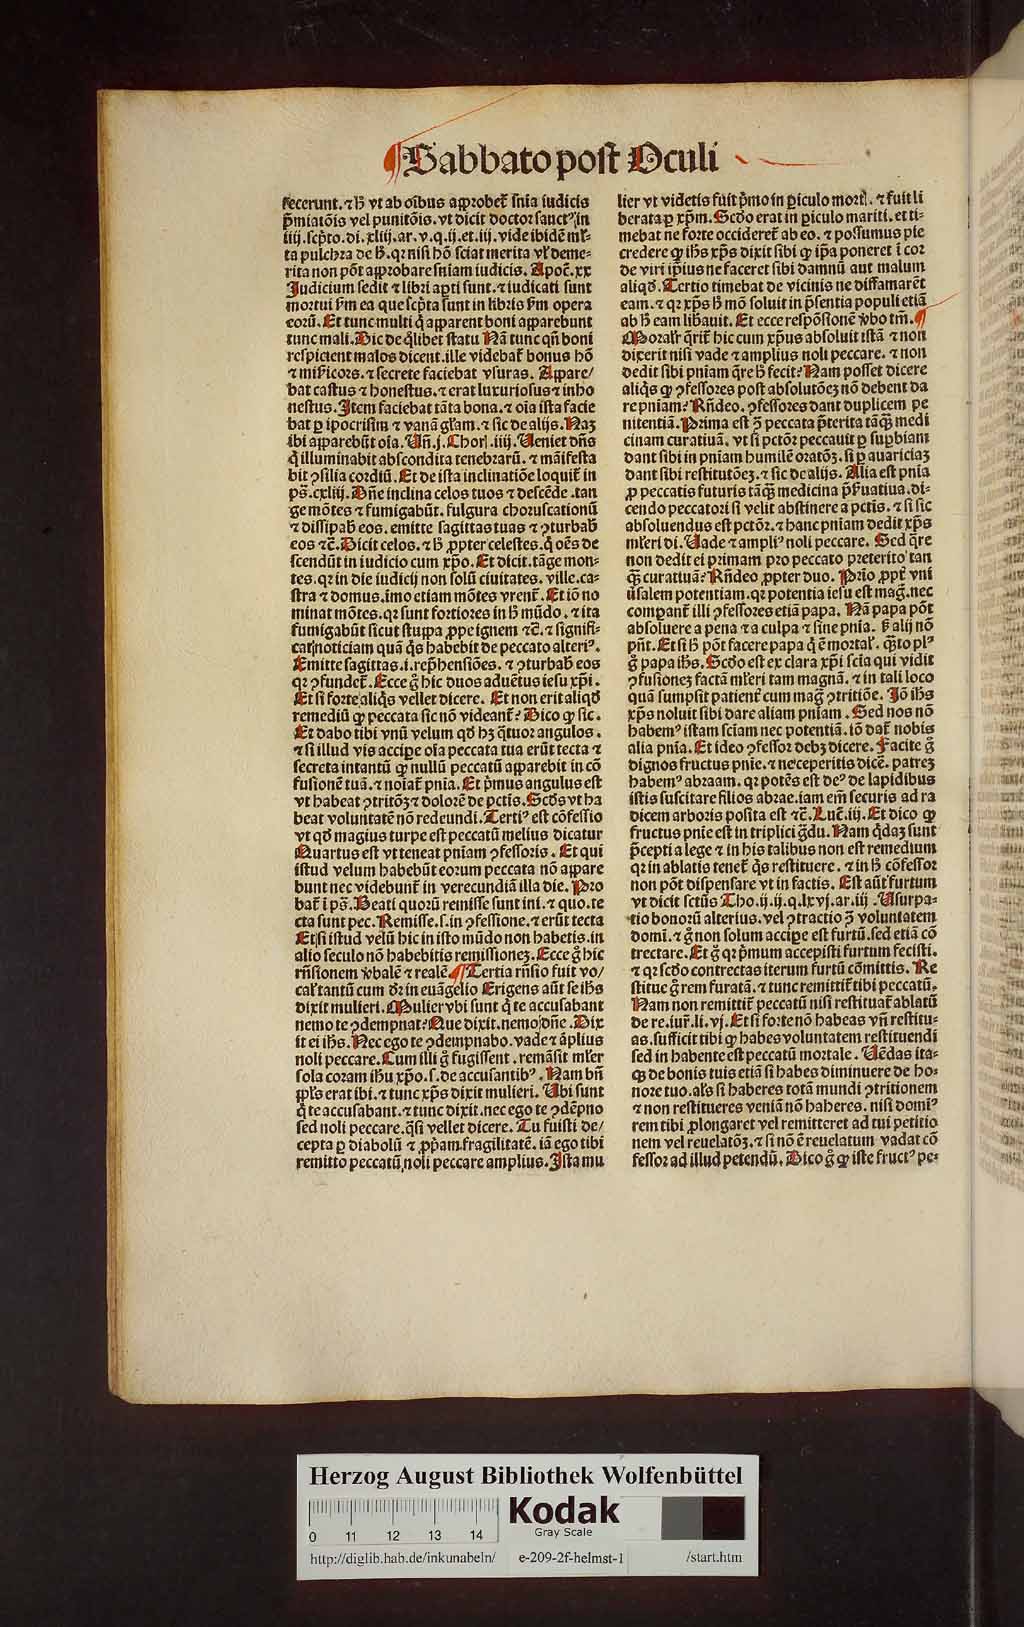 ¶Sabbato post Oculi
fecerunt. ⁊ hͦ vt ab oĩbus approbet᷑ snĩa iudicis
p̃miatõis vel punitõis. vt dicit doctor sanctꝰ, in
iiij. scp̃to. di. xliij. ar. v. q. ij. et. iij. vide ibidẽ ml̃-
ta pulchra de hͦ. qꝛ nisi hõ sciat merita vl̃ deme-
rita non põt approbare sñiam iudicis. Apoc̃. xx
Judicium sedit ⁊ libri apti sunt. ⁊ iudicati sunt
mortui s̃m ea que scp̃ta sunt in libris s̃m opera
eorũ. Et tunc multi q̃ apparent boni apparebunt
tunc mali. Dic de q̃libet statu Nã tunc qñ boni
respicient malos dicent. ille videbat᷑ bonus hõ
⁊ mis̃icors. ⁊ secrete faciebat vsuras. Appare/
bat castus ⁊ honestus. ⁊ erat luxuriosus ⁊ inho
nestus. Item faciebat tãta bona. ⁊ oĩa ista facie
bat ꝑ ipocrisim ⁊ vanã gl̃am. ⁊ sic de alijs. Naꝫ
ibi apparebũt oĩa. Uñ. j. Choꝛ. iiij. Ueniet dñs
q̃ illuminabit abscondita tenebrarũ. ⁊ mãifesta
bit ꝯsilia cordiũ. Et de ista inclinatiõe loquit᷑ in
ps̃. cxliij. Dñe inclina celos tuos ⁊ descẽde. tan
ge mõtes ⁊ fumigabũt. fulgura choruscationũ
⁊ dissipab̃ eos. emitte sagittas tuas ⁊ ꝯturbab̃
eos ⁊c̃. Dicit celos. ⁊ hͦ ꝓpter celestes. q̃ oẽs de
scendũt in iudicio cum xp̃o. Et dicit. tãge mon-
tes. qꝛ in die iudicij non solũ ciuitates. ville. ca-
stra ⁊ domus. imo etiam mõtes vrent᷑. Et iõ no
minat mõtes. qꝛ sunt fortiores in hͦ mũdo. ⁊ ita
fumigabũt sicut stuppa ꝓpe ignem ⁊c̃. ⁊ signifi-
cat noticiam quã q̃s habebit de peccato alteriꝰ.
Emitte sagittas. i. rep̃hensiões. ⁊ ꝯturbab̃ eos
qꝛ ꝯfundet᷑. Ecce g̃ hic duos aduẽtus iesu xp̃i.
Et si forte aliq̃s vellet dicere. Et non erit aliqd̃
remediũ ꝙ peccata sic nõ videant᷑? Dico ꝙ sic.
Et dabo tibi vnũ velum qd̃ hꝫ q̃tuor angulos.
⁊ si illud vis accipe oĩa peccata tua erũt tecta ⁊
secreta intantũ ꝙ nullũ peccatũ apparebit in cõ
fusionẽ tuã. ⁊ noĩat᷑ pñia. Et p̃mus angulus est
vt habeat ꝯtritõꝫ ⁊ dolorẽ de pctis. Scd̃s vt ha
beat voluntatẽ nõ redeundi. Tertiꝰ est cõfessio
vt qd̃ magius turpe est peccatũ melius dicatur
Quartus est vt teneat pñiam ꝯfessoris. Et qui
istud velum habebũt eorum peccata nõ appare
bunt nec videbunt᷑ in verecundiã illa die. Pro
bat᷑ ĩ ps̃. Beati quorũ remisse sunt ini. ⁊ quo. te
cta sunt pec. Remisse. s. in ꝯfessione. ⁊ erũt tecta
Et si istud velũ hic in isto mũdo non habetis. in
alio seculo nõ habebitis remissioneꝫ. Ecce g̃ hic
rñsionem v̾balẽ ⁊ realẽ. ¶Tertia rñsio fuit vo/
cal᷑ tantũ cum dr̃ in euãgelio Erigens aũt se ihs̃
dixit mulieri. Mulier vbi sunt q̃ te accusabant
nemo te ꝯdempnat? Que dixit. nemo dñe. Dix
it ei ihs̃. Nec ego te ꝯdempnabo. vade ⁊ ãplius
noli peccare. Cum illi g̃ fugissent. remãsit ml̃er
sola coram ihũ xp̃o. s. de accusantibꝰ. Nam bñ
pp̃ls erat ibi. ⁊ tunc xp̃s dixit mulieri. Ubi sunt
q̃ te accusabant. ⁊ tunc dixit. nec ego te ꝯdẽpno
sed noli peccare. q̃si vellet dicere. Tu fuisti de/
cepta ꝑ diabolũ ⁊ ꝓpam fragilitatẽ. iã ego tibi
remitto peccatũ, noli peccare amplius. Ista mu
lier vt videtis fuit p̃mo in ꝑiculo mort. ⁊ fuit li
berata ꝑ xp̃m. Scd̃o erat in ꝑiculo mariti. et ti-
mebat ne forte occideret᷑ ab eo. ⁊ possumus pie
credere ꝙ ihs̃ xp̃s dixit sibi ꝙ ip̃a poneret ĩ cor
de viri ip̃ius ne faceret sibi damnũ aut malum
aliqd̃. Tertio timebat de vicinis ne diffamarẽt
eam. ⁊ qꝛ xp̃s hͦ mõ soluit in p̃sentia populi etiã
ab hͦ eam lib̾auit. Et ecce respõsionẽ v̾bo tm̃. ¶
Moral᷑r q̃rit᷑ hic cum xp̃us absoluit istã ⁊ non
dixerit nisi vade ⁊ amplius noli peccare. ⁊ non
dedit sibi pñiam q̃re hͦ fecit? Nam posset dicere
aliq̃s ꝙ ꝯfessores post absolutõeꝫ nõ debent da
re pñiam? Rñdeo. ꝯfessores dant duplicem pe
nitentiã. Prima est ꝯ̃ peccata p̃terita tãq̃ꝫ medi
cinam curatiuã. vt si pctõꝛ peccauit ꝑ suꝑbiam
dant sibi in pñiam humilẽ oratõꝫ. si ꝑ auariciaꝫ
dant sibi restitutõeꝫ. ⁊ sic de alijs. Alia est pñia
ꝓ peccatis futuris tãq̃ꝫ medicina p̃s̾uatiua. di-
cendo peccatori si velit abstinere a pctis. ⁊ si sic
absoluendus est pctõꝛ. ⁊ hanc pñiam dedit xp̃s
ml̃eri di. Uade ⁊ ampliꝰ noli peccare. Sed q̃re
non dedit ei primam pro peccato preterito tan
q̃ꝫ curatiuã? Rñdeo ꝓpter duo. Prĩo ꝓpt̾ vni
ũsalem potentiam. qꝛ potentia iesu est mag̃. nec
compant᷑ illi ꝯfessores etiã papa. Nã papa põt
absoluere a pena ⁊ a culpa ⁊ sine pñia. sꝫ alij nõ
pñt. Et si hͦ põt facere papa q̃ ẽ mortal᷑. q̃ꝫto plꝰ
g̃ papa ihs̃. Scd̃o est ex clara xp̃i scĩa qui vidit
ꝯfusioneꝫ factã ml̃eri tam magnã. ⁊ in tali loco
quã sumpsit patient᷑ cum mag̃ ꝯtritiõe. Iõ ihs̃
xp̃s noluit sibi dare aliam pñiam. Sed nos nõ
habemꝰ istam scĩam nec potentiã. iõ dat᷑ nobis
alia pñia. Et ideo ꝯfessor debꝫ dicere. Facite g̃
dignos fructus pñie. ⁊ ne ceperitis dicẽ. patreꝫ
habemꝰ abraam. qꝛ potẽs est deꝰ de lapidibus
istis suscitare filios abrae. iam em̃ securis ad ra
dicem arboris posita est ⁊c̃. Luc̃. iij. Et dico ꝙ
fructus pñie est in triplici g̃du. Nam q̃daꝫ sunt
p̃cepti a lege ⁊ in his talibus non est remedium
qꝛ in ablatis tenet᷑ q̃s restituere. ⁊ in hͦ cõfessor
non põt dispensare vt in factis. Est aũt furtum
vt dicit sctũs Tho. ij. ij. q. lxvj. ar. iij. Usurpa-
tio bonorũ alterius. vel ꝯtractio ꝯ̃ voluntatem
domĩ. ⁊ g̃ non solum accipe est furtũ. sed etiã cõ
trectare. Et g̃ qꝛ p̃mum accepisti furtum fecisti.
⁊ qꝛ scd̃o contrectas iterum furtũ cõmittis. Re
stitue g̃ rem furatã. ⁊ tunc remittit᷑ tibi peccatũ.
Nam non remittit᷑ peccatũ nisi restituat᷑ ablatũ
de re. iur̃. li. vj. Et si forte nõ habeas vñ restitu-
as. sufficit tibi ꝙ habes voluntatem restituendi
sed in habente est peccatũ mortale. Uẽdas ita-
qꝫ de bonis tuis etiã si habes diminuere de ho-
nore tuo. al̃s si haberes totã mundi ꝯtritionem
⁊ non restitueres veniã nõ haberes. nisi domiꝰ
rem tibi ꝓlongaret vel remitteret ad tui petitio
nem vel reuelatõꝫ. ⁊ si nõ ẽ reuelatum vadat cõ
fessor ad illud petendũ. Dico g̃ ꝙ iste fructꝰ pe-
Herzog August Bibliothek Wolfenbüttel
Kodak
Gray Scale
0 11 12 13 14
http://diglib.hab.de/inkunabeln/ e-209-2f-helmst-1 /start.htm